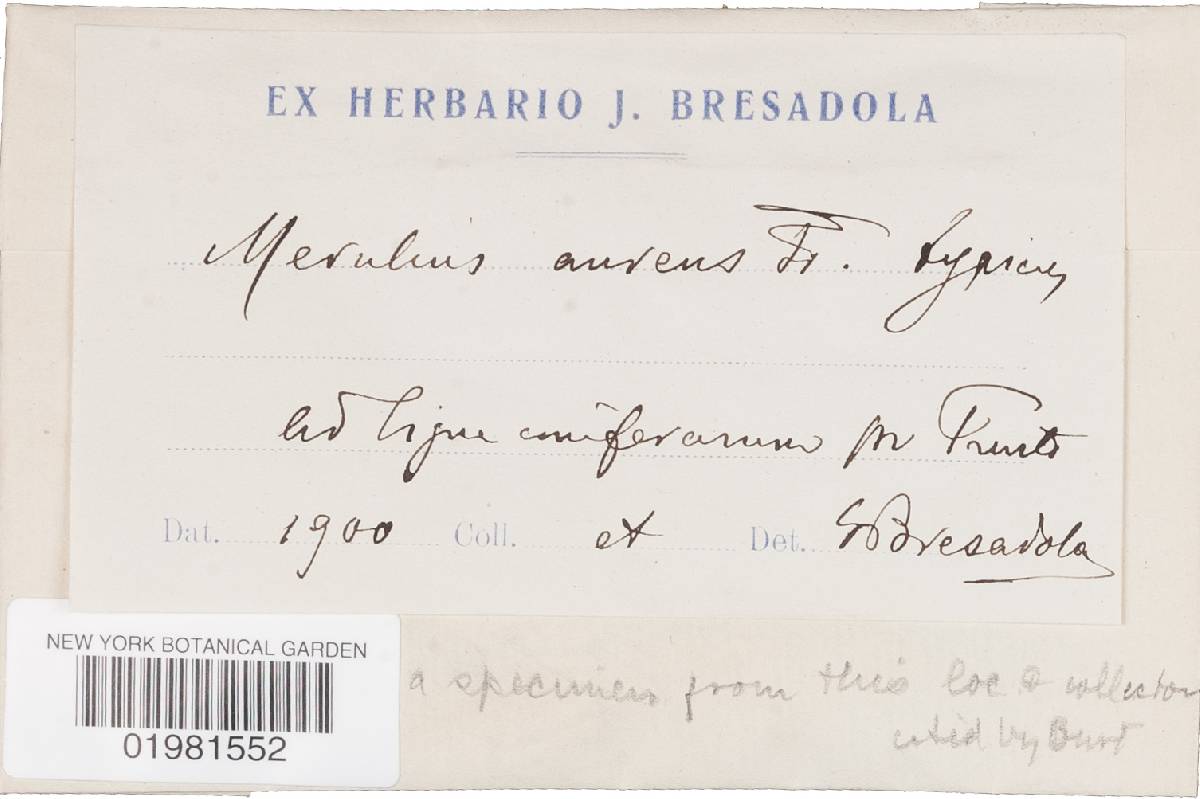 EX HERBARIO J. BRESADOLA
Merulius aureus Fr. typicus
Ad ligna coniferarum pr Trento
Dat. 1900 Coll. et Det. GBresadola
NEW YORK BOTANICAL GARDEN
01981552
a specimen from this loc & collector
cited by Burt